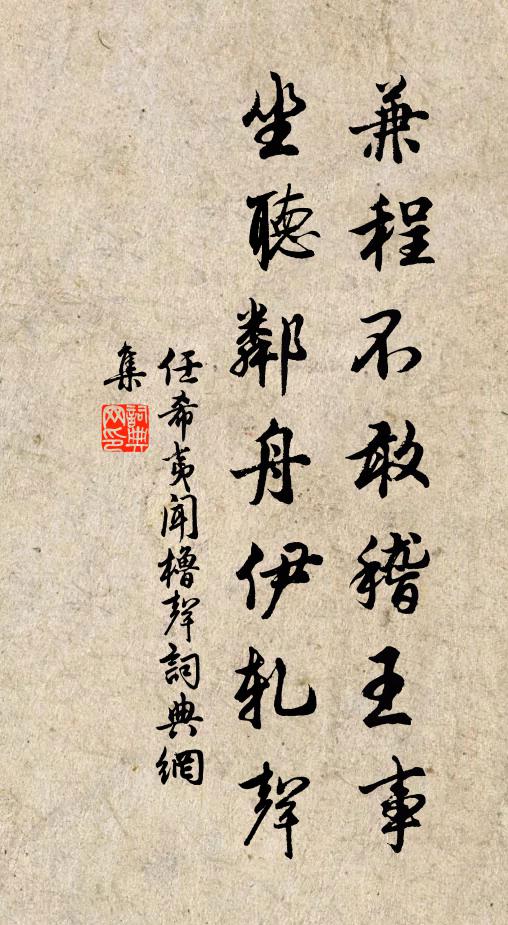 兼程不敢稽王事
坐聽鄰舟伊軋聲
任希夷聞櫓聲詞典網
集
詞典
网印